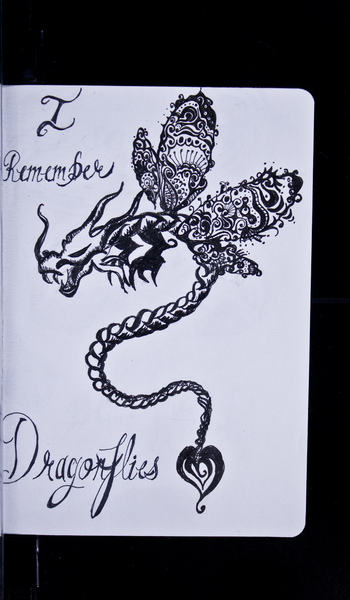 I
Remember
Dragonflies